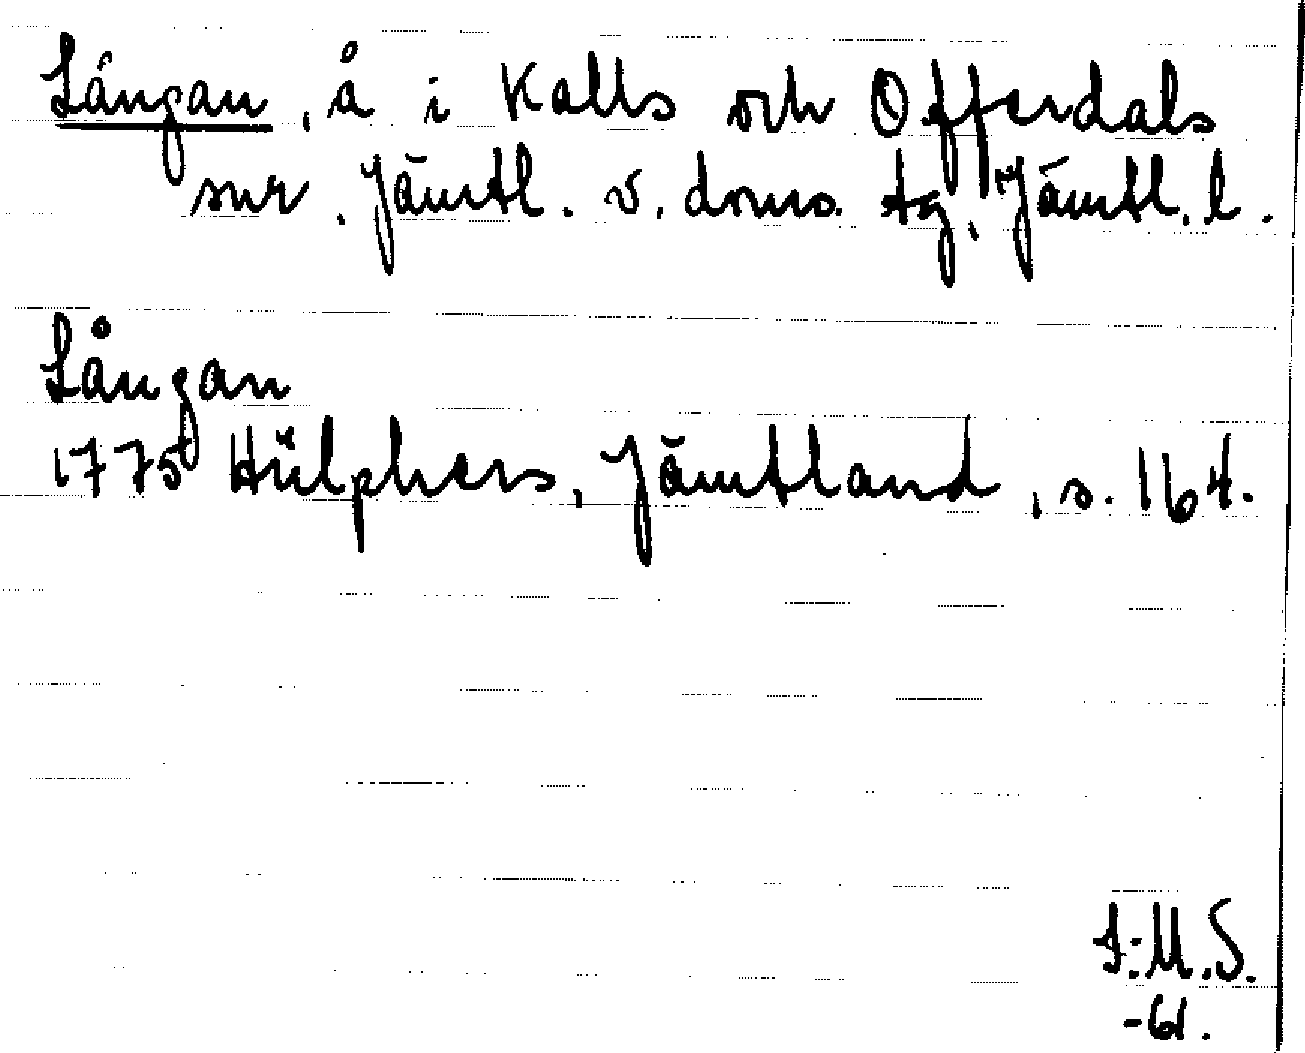 Långan, å i Kalls och Offerdals
snr. Jämtl. v. doms. tg, Jämtl. l.
Långan
1775 Hülphers, Jämtland, s. 164.
I:M.S.
-61.